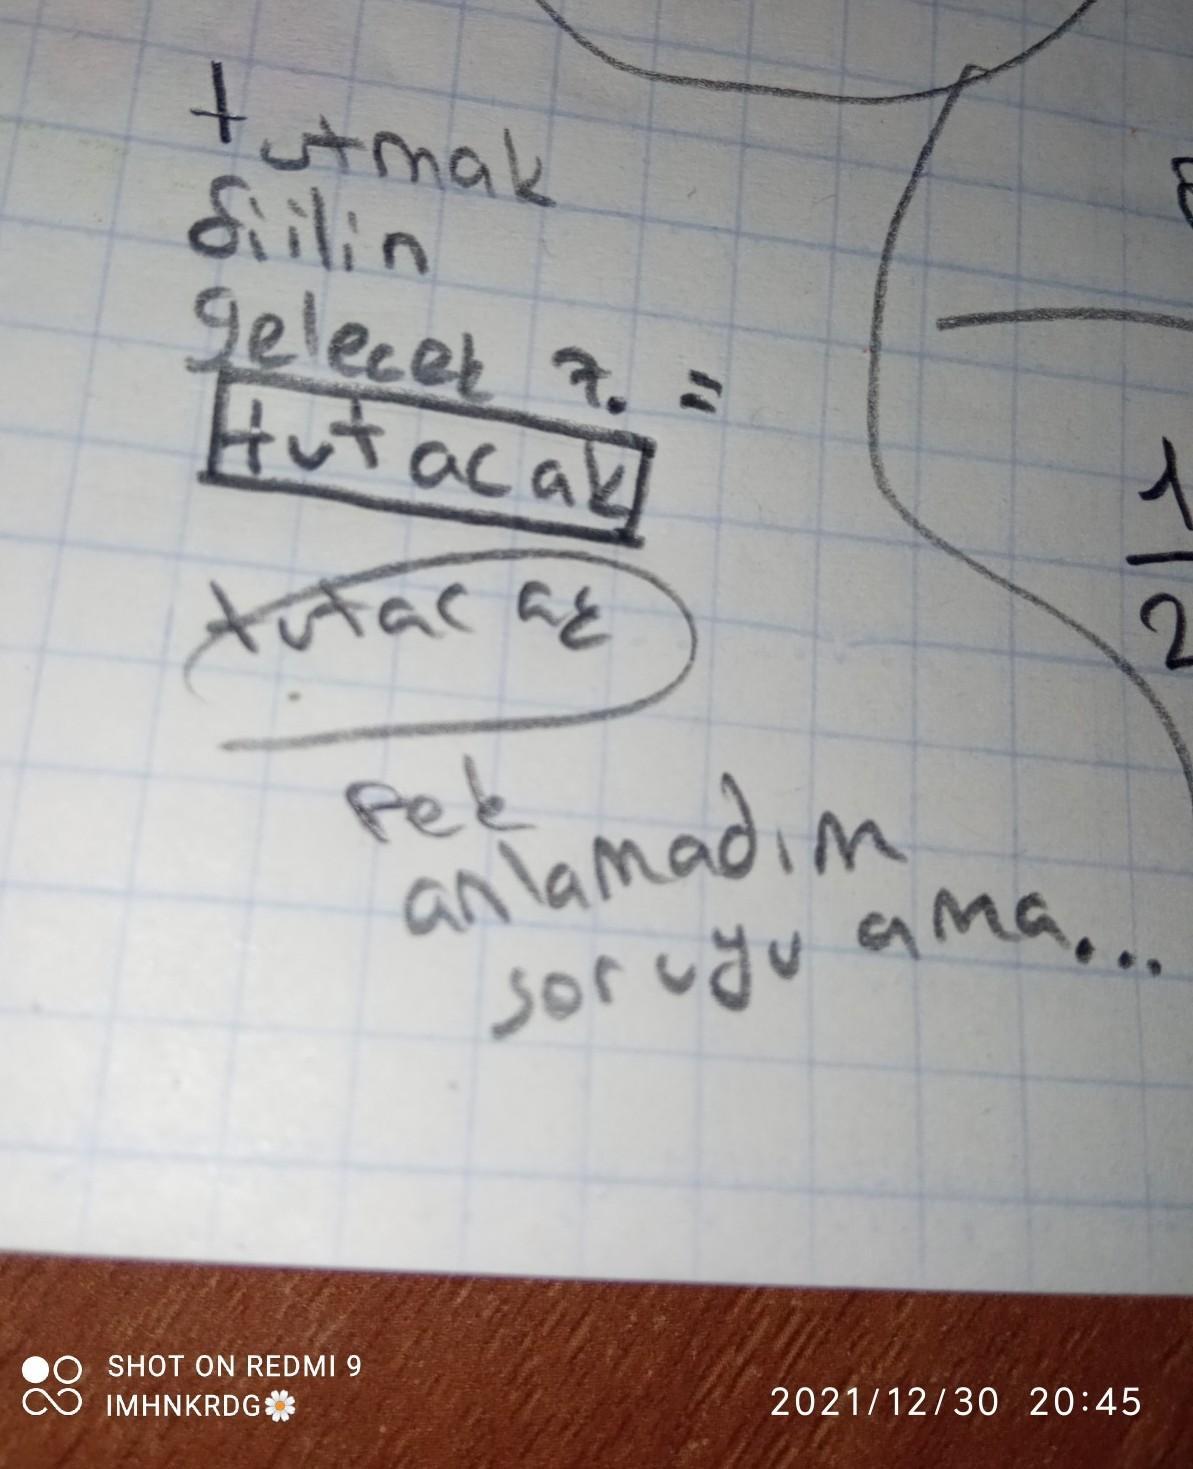 tutmak
fiilin
gelecek z. =
tutacak
tutacak
Pek
anlamadım
soruyu ama...
1
2
SHOT ON REDMI 9
IMHNKRDG🌼
2021/12/30 20:45